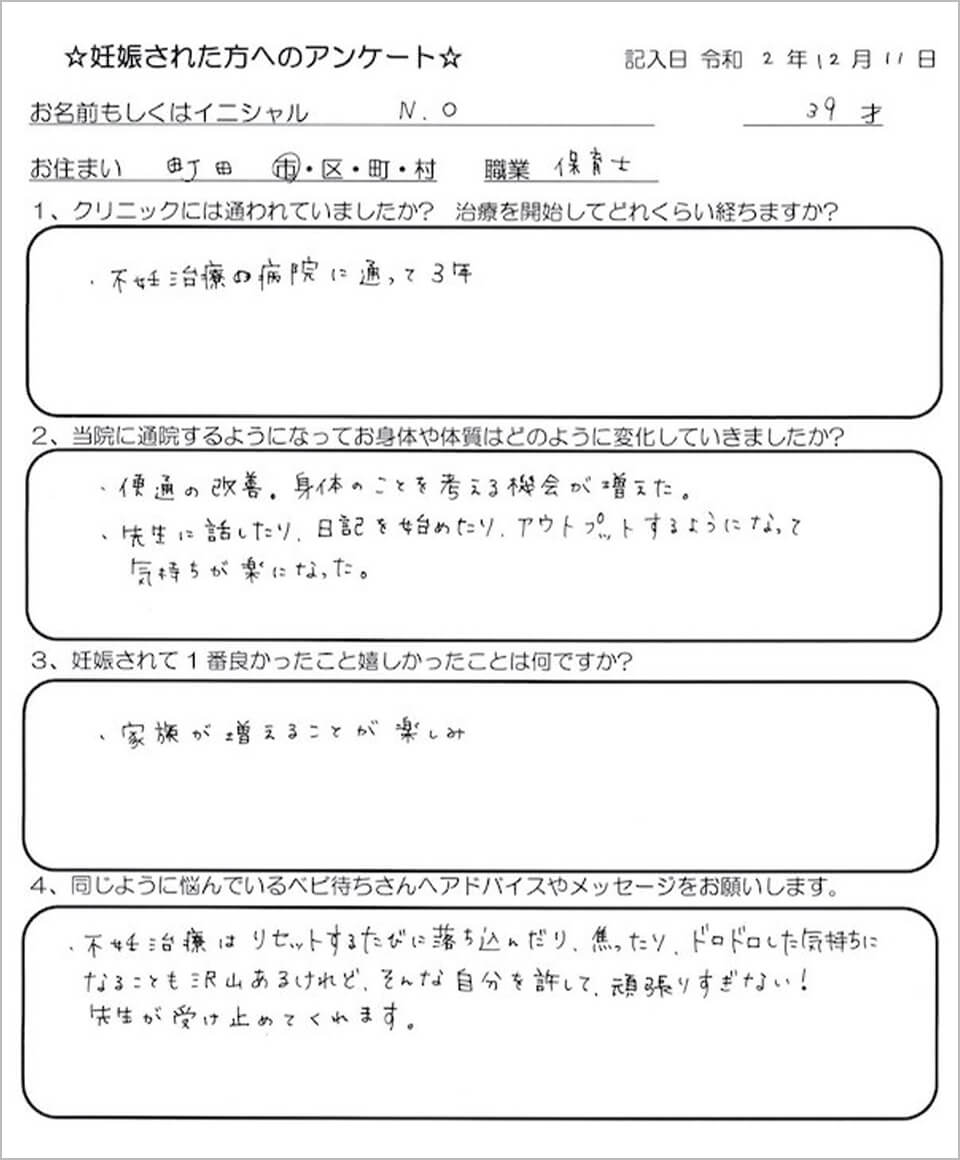 ☆妊娠された方へのアンケート☆ 記入日 令和 2 年 12 月 11 日
お名前もしくはイニシャル N.O 39 才
お住まい 町田 市・区・町・村 職業 保育士
1、クリニックには通われていましたか? 治療を開始してどれくらい経ちますか?
・不妊治療の病院に通って3年
2、当院に通院するようになってお身体や体質はどのように変化していきましたか?
・便通の改善。身体のことを考える機会が増えた。
・先生に話したり、日記を始めたり、アウトプットするようになって
気持ちが楽になった。
3、妊娠されて1番良かったこと嬉しかったことは何ですか?
・家族が増えることが楽しみ
4、同じように悩んでいるベビ待ちさんへアドバイスやメッセージをお願いします。
・不妊治療はリセットするたびに落ち込んだり、焦ったり、ドロドロした気持ちに
なることも沢山あるけれど、そんな自分を許して、頑張りすぎない!
先生が受け止めてくれます。